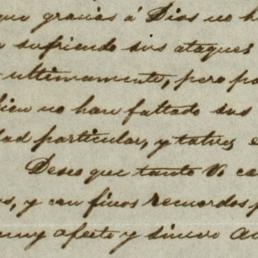 que gracias á Dios no h
sufriendo sus ataques
ultimamente, pero po
bien no han faltado sus
dad particular, y talves e
Deseo que tanto V. co
os, y con finos recuerdos p
muy afecto y sincero a